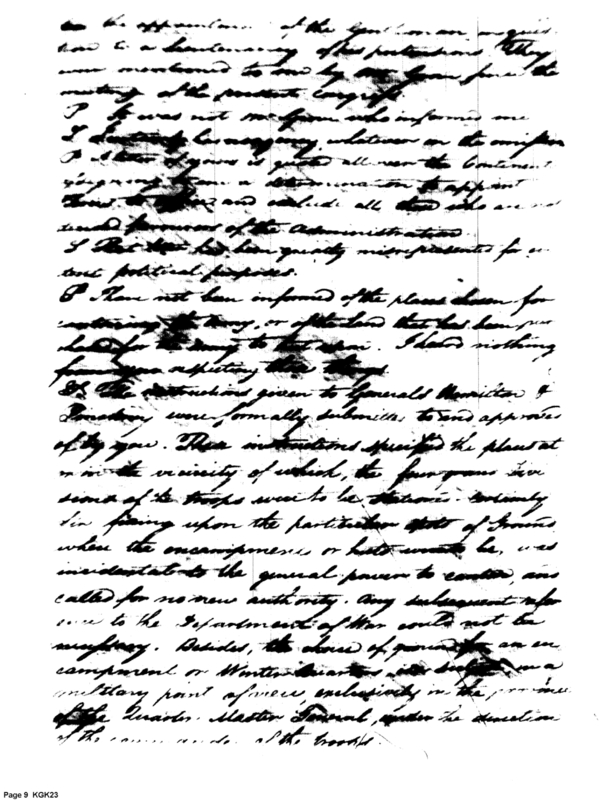 the appointment of the Gentleman in question
to a Lieutenancy of his pretensions. They
were mentioned to me by Mr Gunn since the
meeting of the present congress.
P It was not Mr Gunn who informed me
S I certainly had no agency whatever in the omission
P A letter of yours is quoted all over the Continent
a determination to appoint
and exclude all those who are not
favourers of the Administration.
S That letter has been greatly misrepresented for
political purposes.
P I have not been informed of the places chosen for
cantoning the Army, or of the land that has been pur
chased for the army to this scene. I heard nothing
from you respecting these things.
S. The instructions given to Generals Hamilton &
Pinckney were formally submitted to and approved
of by you. These instructions specified the places at
or in the vicinity of which, the four grand divi
sions of the troops were to be stationed.
fixing upon the particular spots of Ground
where the encampments or huts would be, was
incidental to the general power to canton, and
called for no new authority. Any subsequent refer
ence to the Department of War could not be
necessary. Besides, the choice of ground for an en
campment or Winter Quarters in a
military point of view exclusively in the province
of the Quarter-Master General, under the direction
of the commander of the troops.
Page 9 KGK23